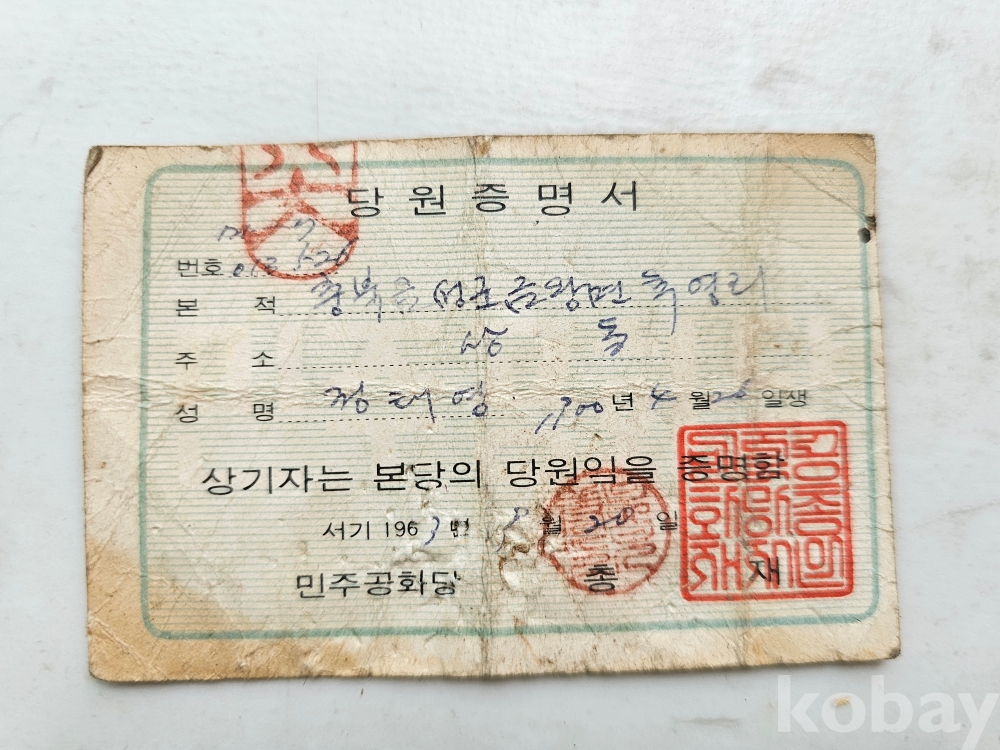 당원증명서
번호
본적 충북음성군금왕면 육영리
주소 상동
성명 정태영 1900년 4월 26일생
상기자는 본당의 당원임을 증명함
서기 1963년 8월 20일
민주공화당 총재
kobay